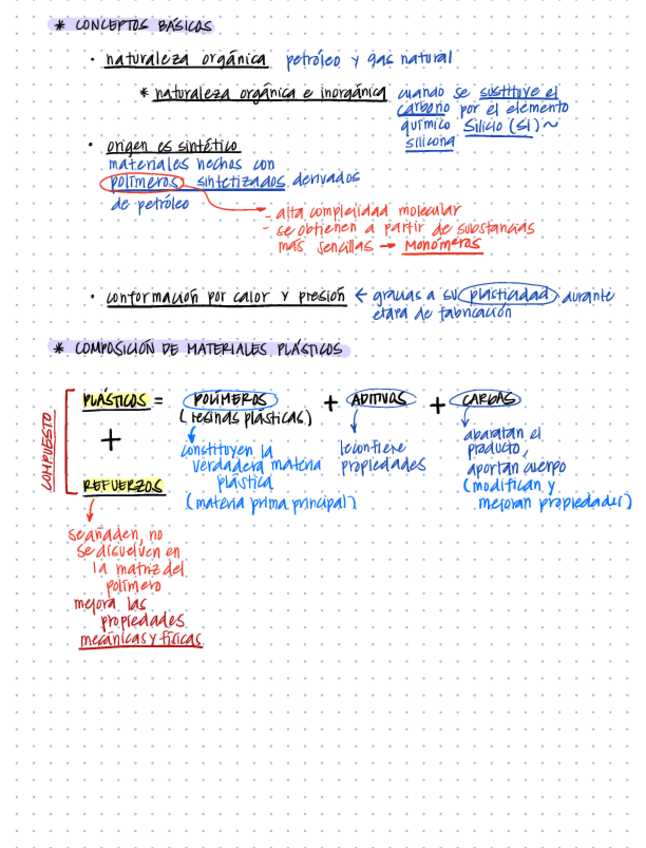 * CONCEPTOS BÁSICOS
· naturaleza orgánica petróleo y gas natural
* naturaleza orgánica e inorgánica cuando se sustituye el
carbono por el elemento
químico Silicio (Si) ~
silicona
· origen es sintético
materiales hechos con
polímeros sintetizados derivados
de petróleo
- alta complejidad molecular
- se obtienen a partir de substancias
más sencillas → MONÓMEROS
· conformación por calor y presión ← gracias a su plasticidad durante
etapa de fabricación
* COMPOSICIÓN DE MATERIALES PLÁSTICOS
COMPUESTO
PLÁSTICOS = POLÍMEROS + ADITIVOS + CARGAS
(resinas plásticas)
+
REFUERZOS
constituyen la
verdadera materia
plástica
(materia prima principal)
le confiere
propiedades
abaratan el
producto,
aportan cuerpo
(modifican y
mejoran propiedades)
se añaden, no
se disuelven en
la matriz del
polímero
mejora las
propiedades
mecánicas y físicas